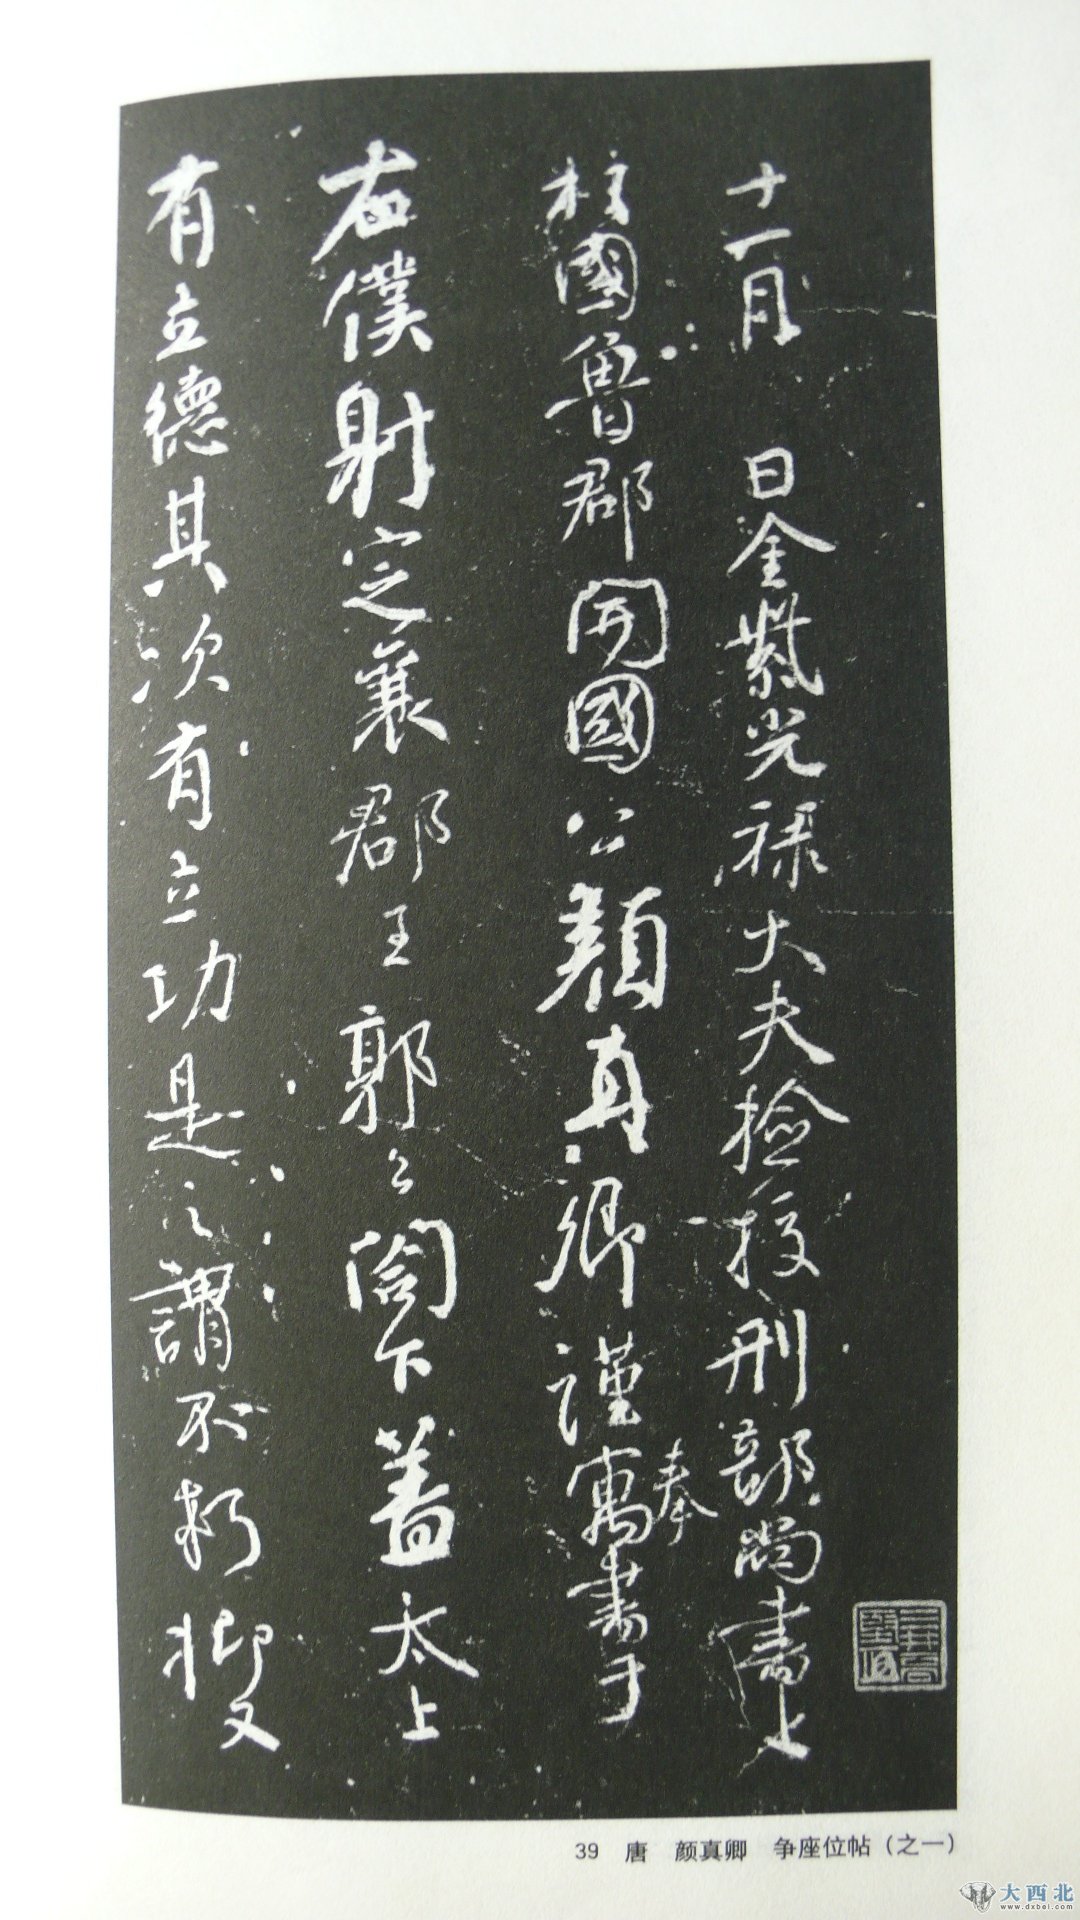 十一月 日金紫光祿大夫檢校刑部尚書上
柱國魯郡開國公顏真卿謹奉寓書于
右僕射定襄郡王郭公閤下蓋太上
有立德其次有立功是之謂不朽抑又
39 唐 颜真卿 争座位帖（之一）
大西北
www.dxbei.com